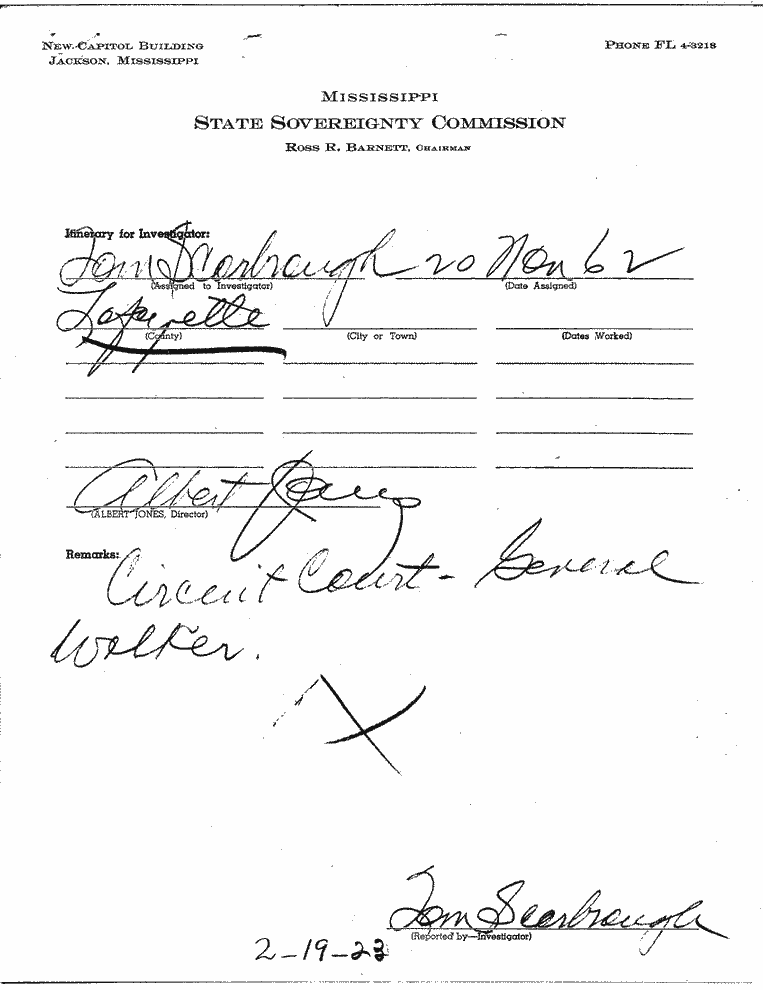 NEW CAPITOL BUILDING
JACKSON, MISSISSIPPI
PHONE FL 4-3218
MISSISSIPPI
STATE SOVEREIGNTY COMMISSION
ROSS R. BARNETT, CHAIRMAN
Itinerary for Investigator:
Tom Scarbrough 20 Nov 62
(Assigned to Investigator) (Date Assigned)
Lafayette
(County) (City or Town) (Dates Worked)
Albert Jones
(ALBERT JONES, Director)
Remarks:
Circuit Court - General
Walker.
Tom Scarbrough
(Reported by—Investigator)
2-19-23